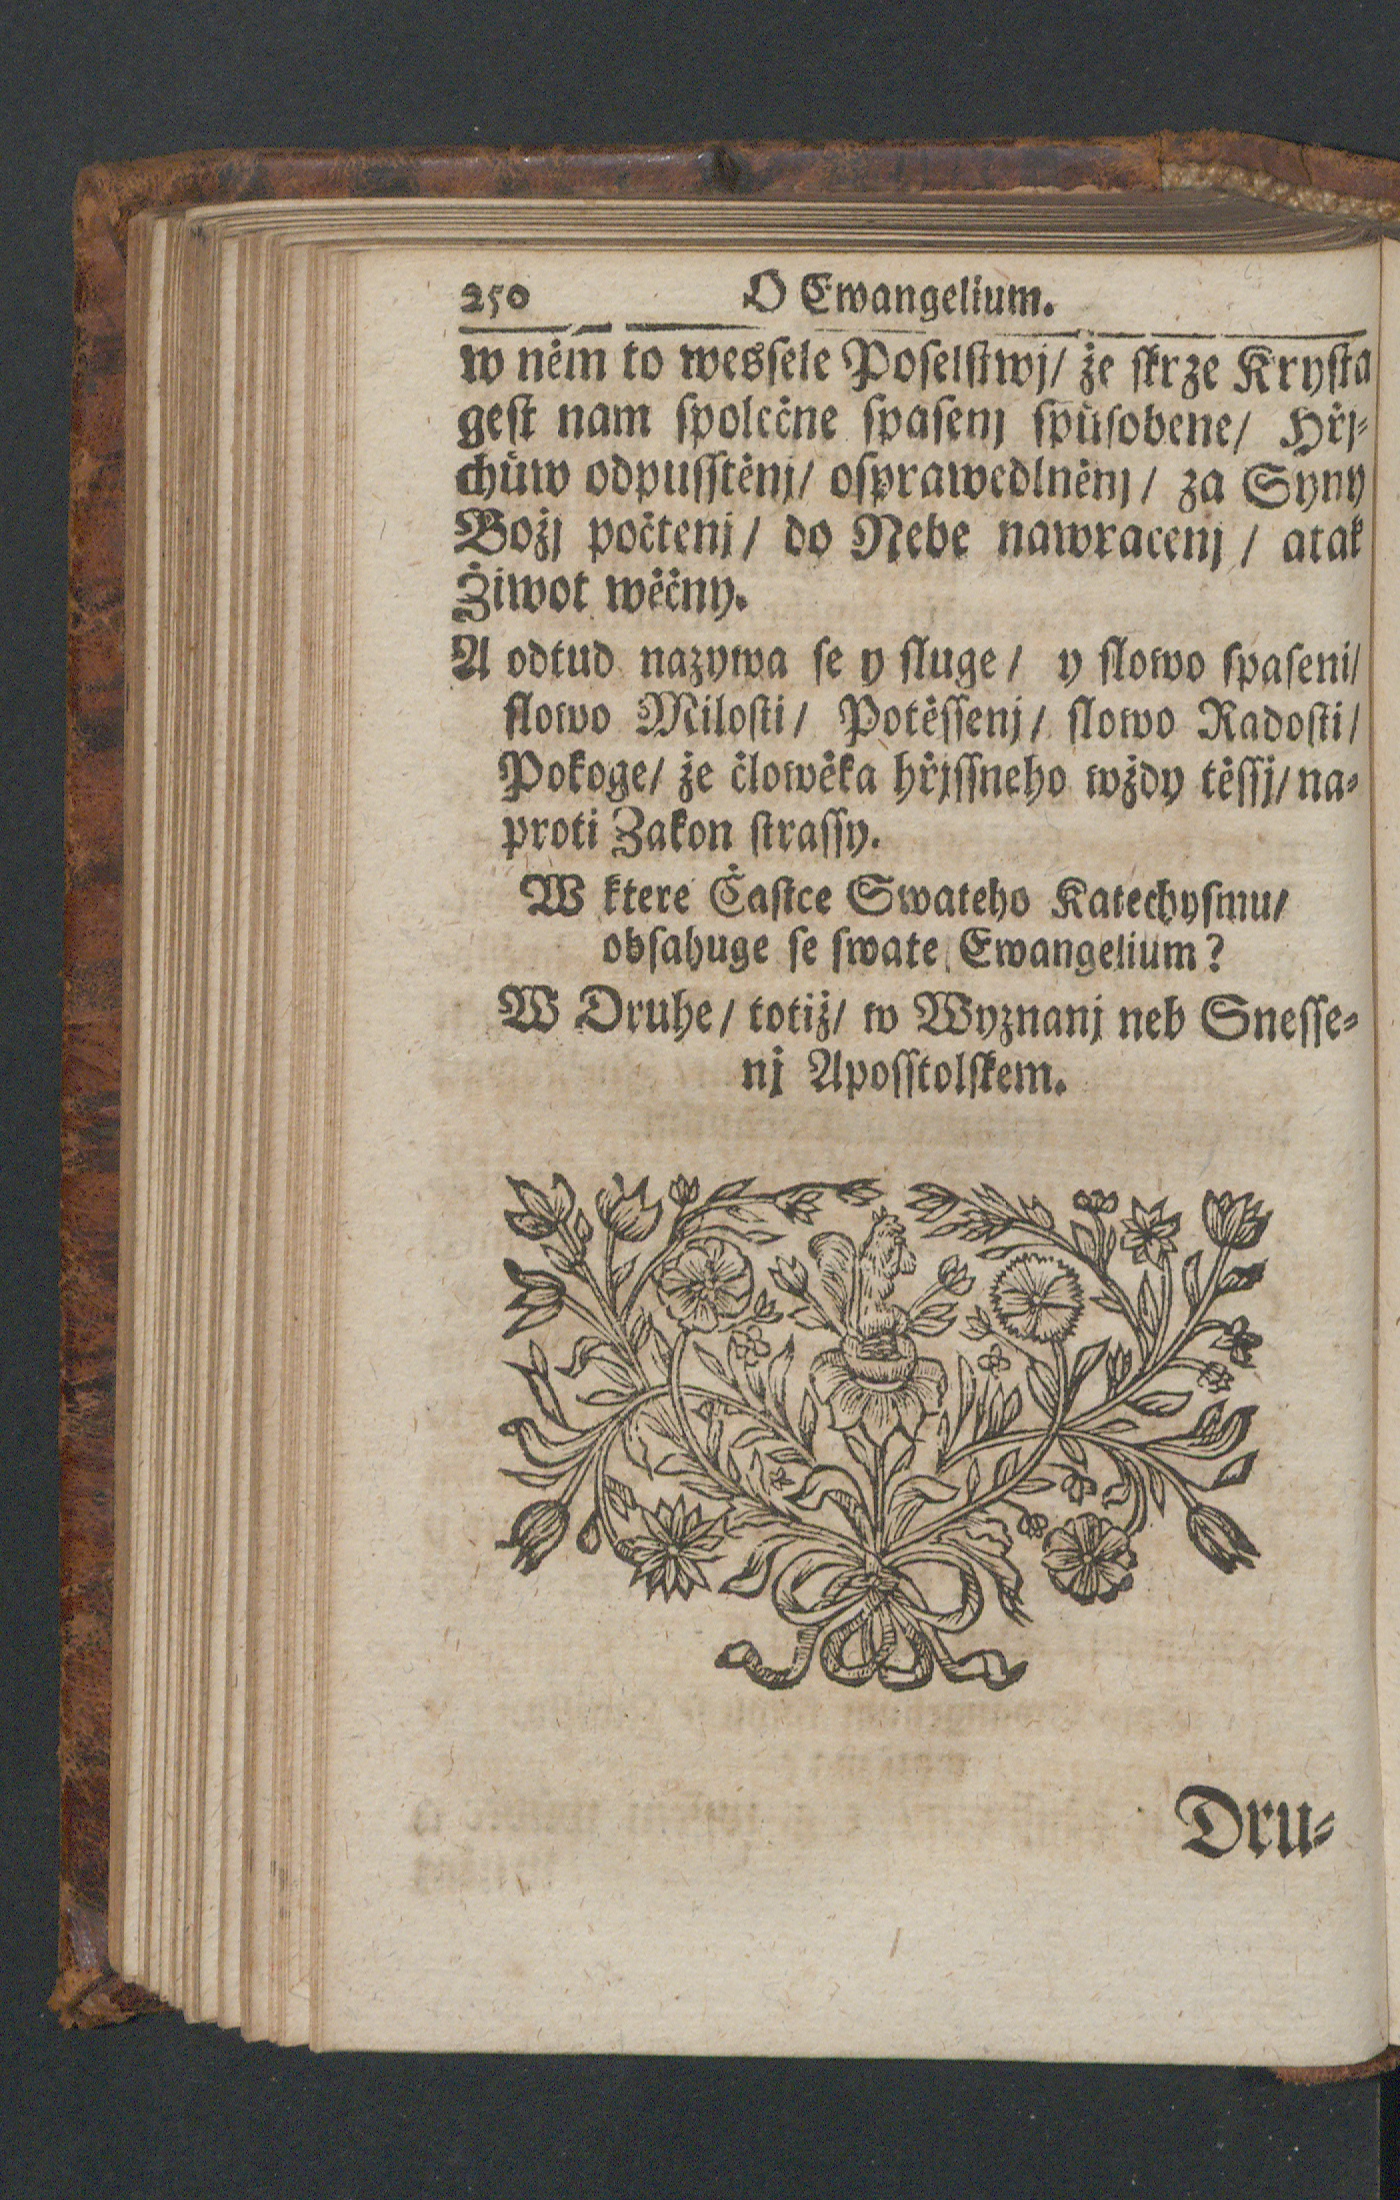 250 O Ewangelium.
w něm to wesſele Poſelſtwj/ že ſkrze Kryſta
geſt nam ſpolečne ſpaſenj ſpůſobene/ Hřj⸗
chůw odpuſſtěnj/ oſprawedlněnj/ za Syny
Božj počtenj/ do Nebe nawracenj/ atak
Žiwot wěčny.
A odtud nazywa ſe y ſluge/ y ſlowo ſpaſeni/
ſlowo Miloſti/ Potěſſenj/ ſlowo Radoſti/
Pokoge/ že člowěka hřjſſneho wždy těſſj/ na⸗
proti Zakon ſtraſſy.
W ktere Čaſtce Swateho Katechyſmu/
obſahuge ſe ſwate Ewangelium?
W Druhe/ totiž/ w Wyznanj neb Sneſſe⸗
nj Apoſſtolſkem.
Dru⸗